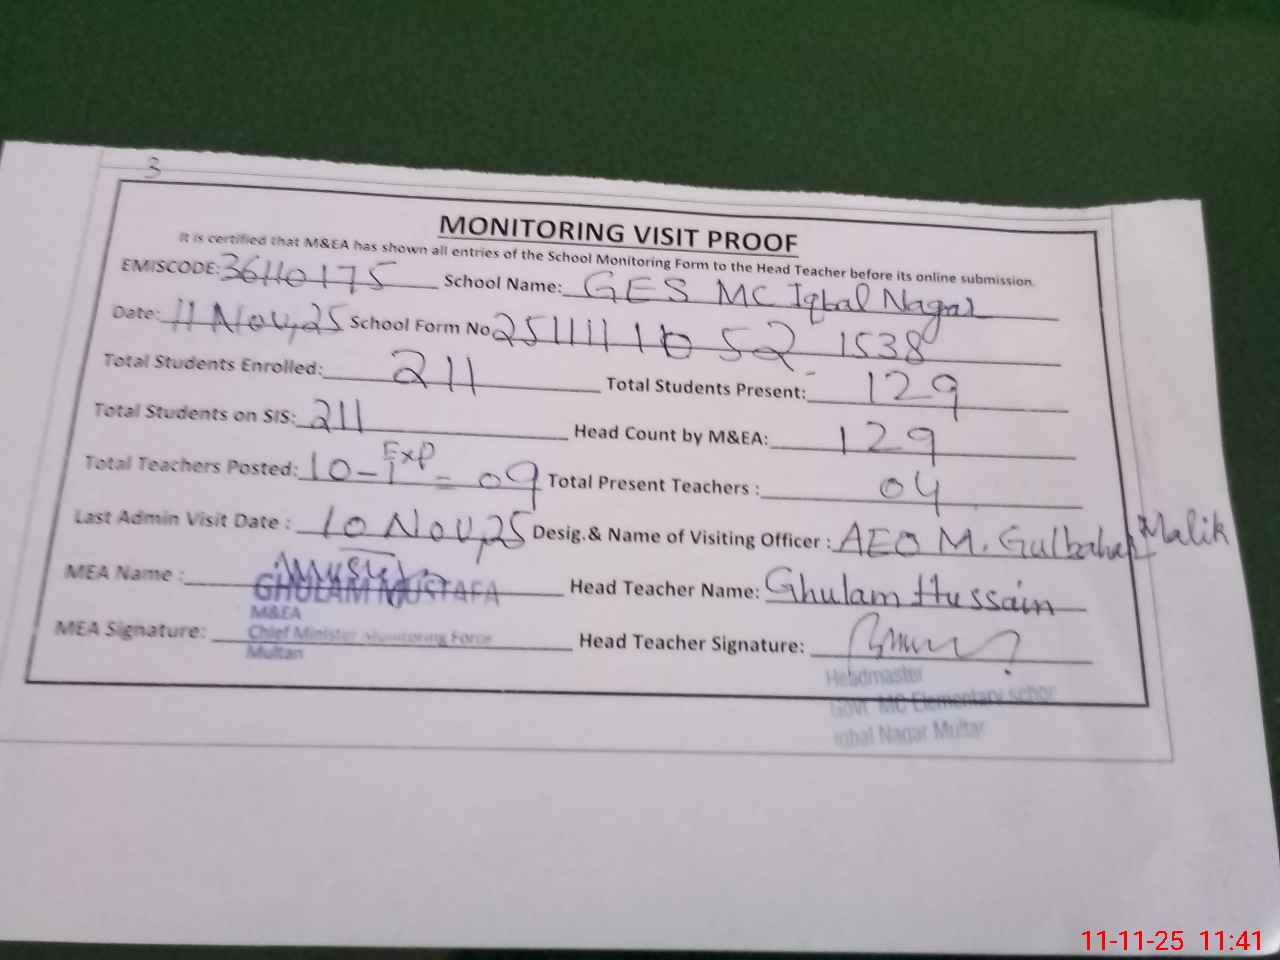 3
MONITORING VISIT PROOF
It is certified that M&EA has shown all entries of the School Monitoring Form to the Head Teacher before its online submission.
EMISCODE: 36110175 School Name: GES MC Iqbal Nagar
Date: 11 Nov, 25 School Form No 2511111052 1538
Total Students Enrolled: 211 Total Students Present: 129
Total Students on SIS: 211 Head Count by M&EA: 129
Total Teachers Posted: 10-1 Exp = 09 Total Present Teachers : 04
Last Admin Visit Date : 10 Nov, 25 Desig.& Name of Visiting Officer : AEO M. Gulbahar Malik
MEA Name : GHULAM MUSTAFA Head Teacher Name: Ghulam Hussain
M&EA
MEA Signature: Chief Minister Monitoring Force Head Teacher Signature:
Multan
Headmaster
Govt. MC Elementary School
Iqbal Nagar Multan
11-11-25 11:41